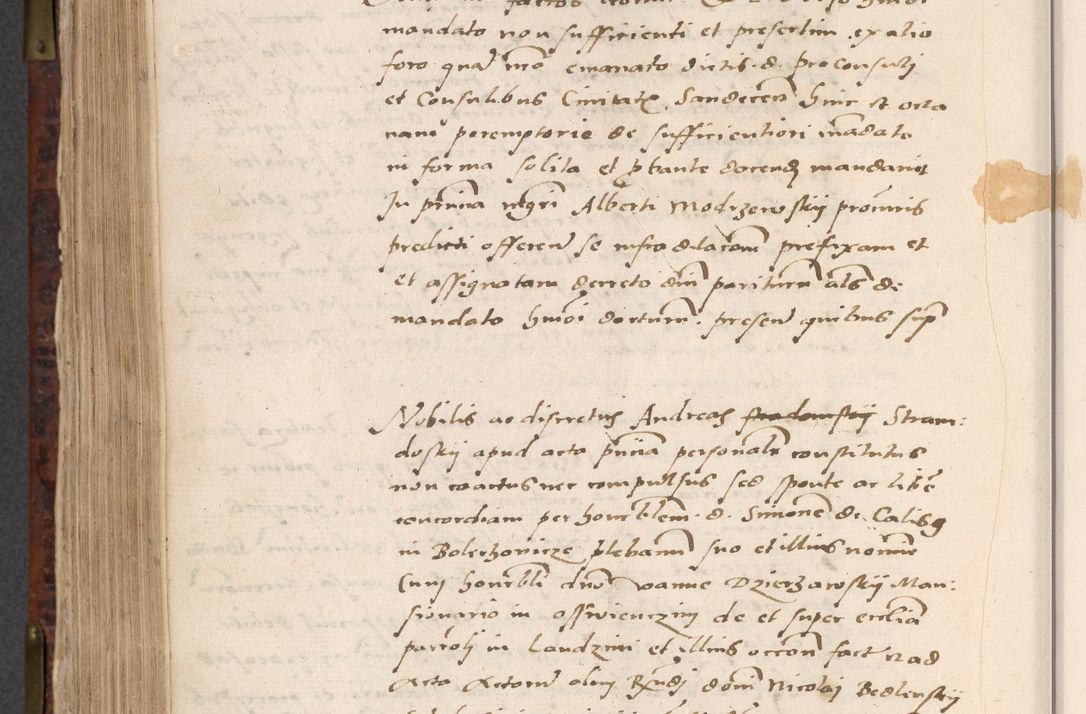 mandato non sufficienti et presertim ex alio
foro quam emanato dictis d. proconsuli
et Consulibus Civitatis Sandecen hinc et octa
nam peremptorie de sufficientiori mandato
in forma solita et probante docend mandavit
In pntia mgri Alberti Modrzewskij procuris
predicti offeren se infra dilacionem prefixam et
et assignatam decreto dni pariturum als de
mandato hmoi docturum. presen quibus supra
Nobilis ac discretus Andreas Stram:
doskij apud acta pntia personalr constitutus
non coactus nec compulsus sed sponte ac libere
concordiam per honorablem d. Simonem de Calisz
in Bolechowicze plebanum suo et illius nomine
Cum honorabli dno Joanne Dzierzawskij Man:
sionario in Osswienczim de et super ecclia
parrochi in Laudzini et illius occone facta ad
Acta Actorum olim Rndi domini Nicolaj Bedlenskij